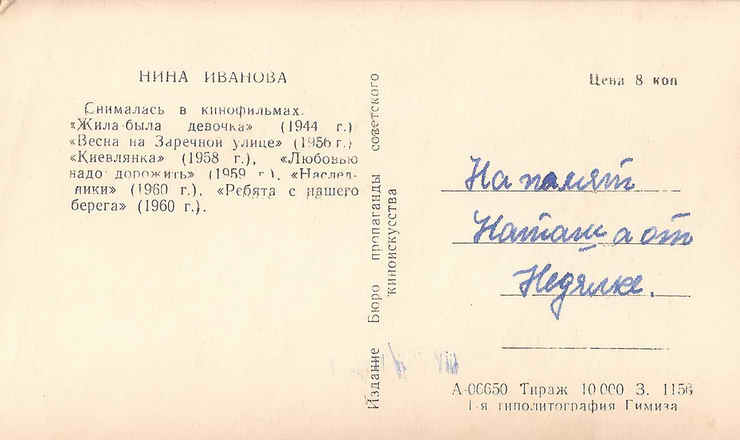 НИНА ИВАНОВА
Снималась в кинофильмах.
«Жила-была девочка» (1944 г.)
«Весна на Заречной улице» (1956 г.)
«Киевлянка» (1958 г.), «Любовью
надо дорожить» (1959 г.). «Наслед-
ники» (1960 г.). «Ребята с нашего
берега» (1960 г.).
Издание Бюро пропаганды советского
киноискусства
Цена 8 коп
На памят
Наташа от
Недялке.
А-06650 Тираж 10 000 З. 1156
1-я типолитография Гимиза